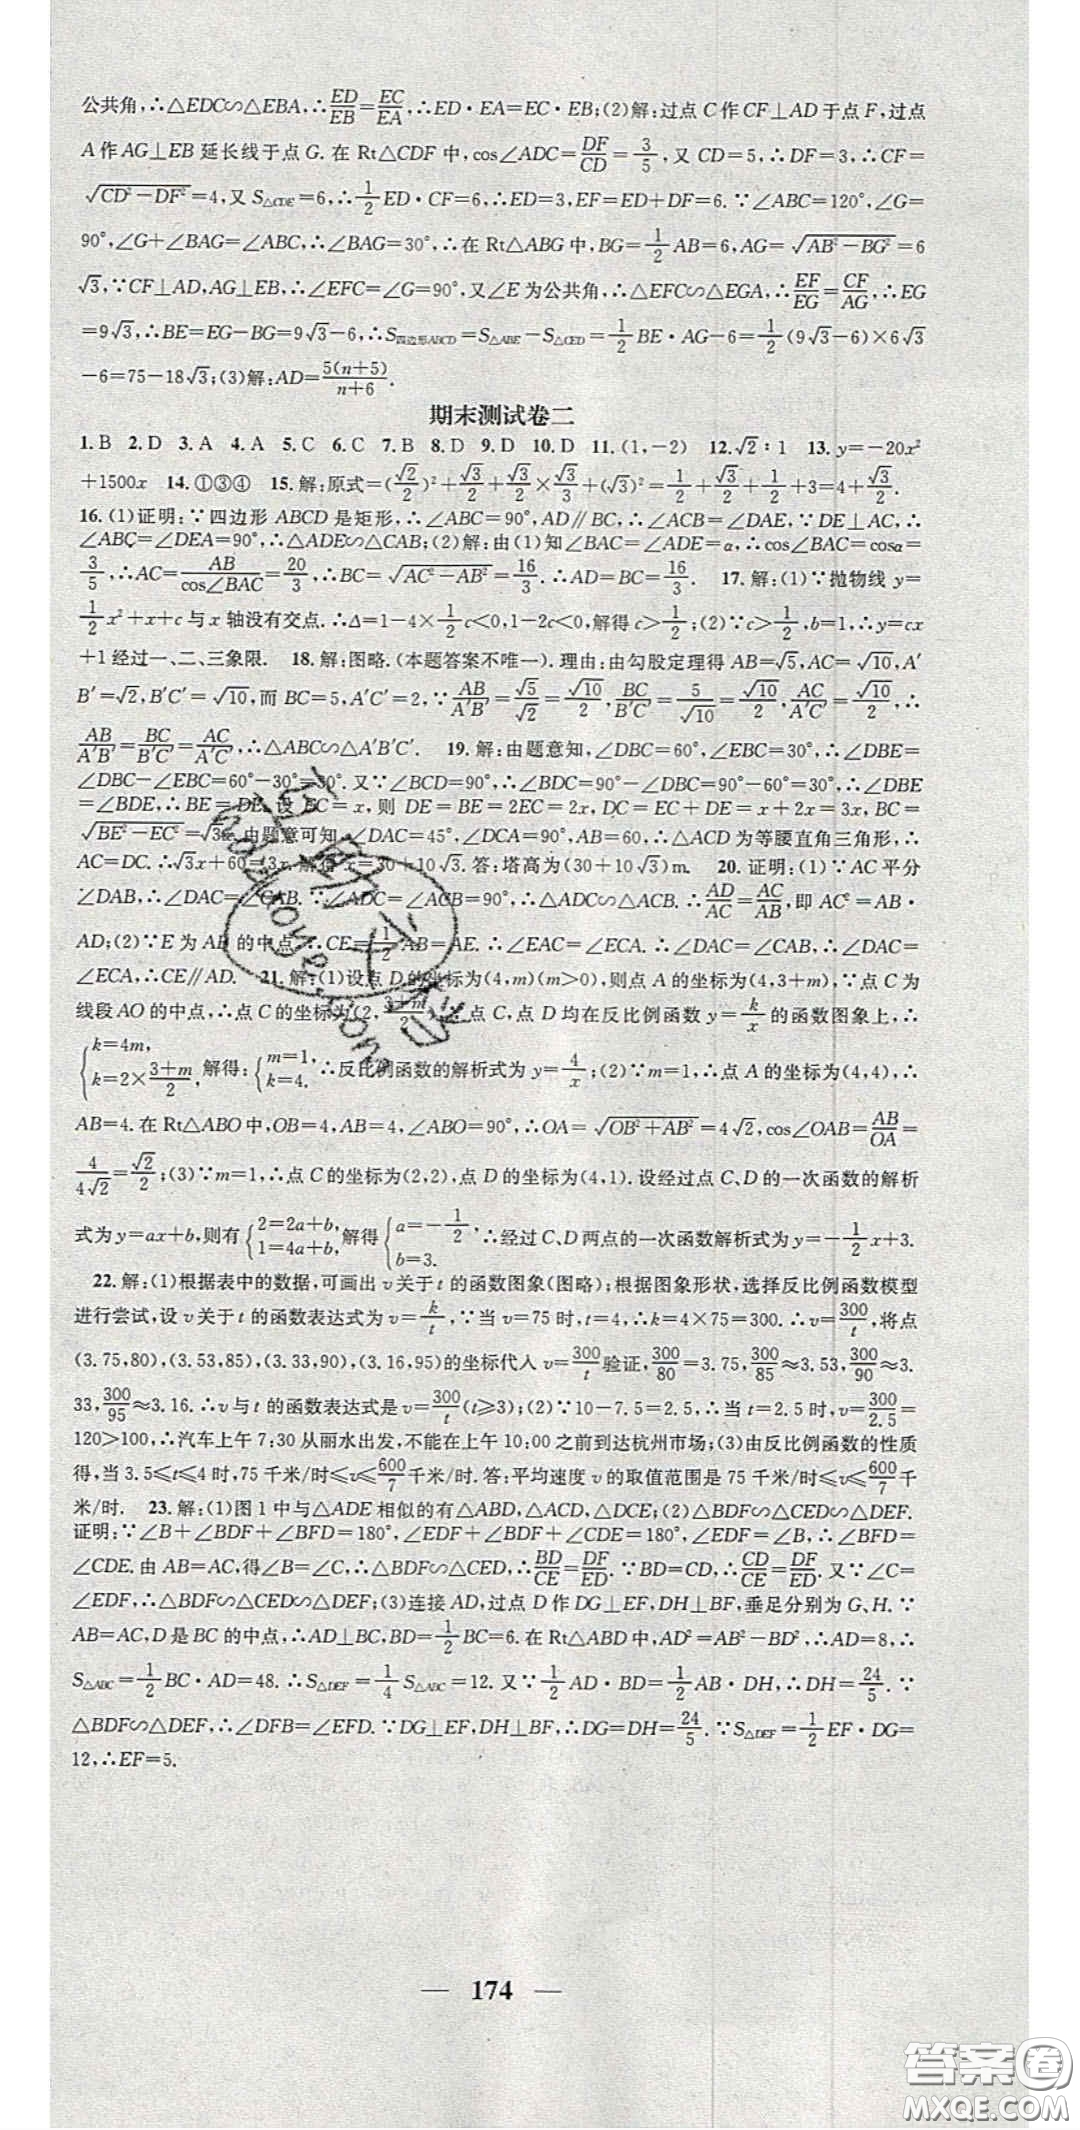 公共角,∴△EDC∽△EBA,∴ED/EB=EC/EA,∴ED·EA=EC·EB;(2)解:过点C作CF⊥AD于点F,过点
A作AG⊥EB延长线于点G.在Rt△CDF中,cos∠ADC=DF/CD=3/5,又CD=5,∴DF=3,∴CF=
√(CD²-DF²)=4,又S△CDE=6,∴1/2ED·CF=6,∴ED=3,EF=ED+DF=6.∵∠ABC=120°,∠G=
90°,∠G+∠BAG=∠ABC,∴∠BAG=30°,∴在Rt△ABG中,BG=1/2AB=6,AG=√(AB²-BG²)=6
√3,∵CF⊥AD,AG⊥EB,∴∠EFC=∠G=90°,又∠E为公共角,∴△EFC∽△EGA,∴EF/EG=CF/AG,∴EG
=9√3,∴BE=EG-BG=9√3-6,∴S四边形ABCD=S△ABE-S△CED=1/2BE·AG-6=1/2(9√3-6)×6√3
-6=75-18√3;(3)解:AD=5(n+5)/(n+6).
期末测试卷二
1.B 2.D 3.A 4.A 5.C 6.C 7.B 8.D 9.D 10.D 11.(1,-2) 12.√2∶1 13.y=-20x²
+1500x 14.①③④ 15.解:原式=(√2/2)²+√3/2+√3/2×√3/3+(√3)²=1/2+√3/2+1/2+3=4+√3/2.
16.(1)证明:∵四边形ABCD是矩形,∴∠ABC=90°,AD∥BC,∴∠ACB=∠DAE,∵DE⊥AC,∴
∠ABC=∠DEA=90°,∴△ADE∽△CAB;(2)解:由(1)知∠BAC=∠ADE=α,∴cos∠BAC=cosα=
3/5,∴AC=AB/cos∠BAC=20/3,∴BC=√(AC²-AB²)=16/3.∴AD=BC=16/3. 17.解:(1)∵抛物线y=
1/2x²+x+c与x轴没有交点.∴Δ=1-4×1/2c<0,1-2c<0,解得c>1/2;(2)∵c>1/2,b=1,∴y=cx
+1经过一、二、三象限. 18.解:图略.(本题答案不唯一).理由:由勾股定理得AB=√5,AC=√10,A′
B′=√2,B′C′=√10,而BC=5,A′C′=2,∵AB/A′B′=√5/√2=√10/2,BC/B′C′=5/√10=√10/2,AC/A′C′=√10/2,∴
AB/A′B′=BC/B′C′=AC/A′C′,∴△ABC∽△A′B′C′. 19.解:由题意知,∠DBC=60°,∠EBC=30°,∴∠DBE=
∠DBC-∠EBC=60°-30°=30°.又∵∠BCD=90°,∴∠BDC=90°-∠DBC=90°-60°=30°,∴∠DBE
=∠BDE,∴BE=DE.设EC=x,则DE=BE=2EC=2x,DC=EC+DE=x+2x=3x,BC=
√(BE²-EC²)=√3x,由题意可知,∠DAC=45°,∠DCA=90°,AB=60,∴△ACD为等腰直角三角形,∴
AC=DC.∴√3x+60=3x.解得x=30+10√3.答:塔高为(30+10√3)m. 20.证明:(1)∵AC平分
∠DAB,∴∠DAC=∠CAB.∵∠ADC=∠ACB=90°,∴△ADC∽△ACB.∴AD/AC=AC/AB,即AC²=AB·
AD;(2)∵E为AB的中点,∴CE=1/2AB=AE.∴∠EAC=∠ECA.∴∠DAC=∠CAB,∴∠DAC=
∠ECA,∴CE∥AD. 21.解:(1)设点D的坐标为(4,m)(m>0),则点A的坐标为(4,3+m),∵点C为
线段AO的中点,∴点C的坐标为(2,(3+m)/2).∵点C,点D均在反比例函数y=k/x的函数图象上,∴
{k=4m, k=2×(3+m)/2 解得:{m=1, k=4. ∴反比例函数的解析式为y=4/x;(2)∵m=1,∴点A的坐标为(4,4),∴
AB=4.在Rt△ABO中,OB=4,AB=4,∠ABO=90°,∴OA=√(OB²+AB²)=4√2,cos∠OAB=AB/OA=
4/(4√2)=√2/2;(3)∵m=1,∴点C的坐标为(2,2),点D的坐标为(4,1).设经过点C、D的一次函数的解析
式为y=ax+b,则有{2=2a+b, 1=4a+b, 解得{a=-1/2, b=3. ∴经过C、D两点的一次函数解析式为y=-1/2x+3.
22.解:(1)根据表中的数据,可画出v关于t的函数图象(图略);根据图象形状,选择反比例函数模型
进行尝试,设v关于t的函数表达式为v=k/t,∵当v=75时,t=4,∴k=4×75=300.∴v=300/t,将点
(3.75,80),(3.53,85),(3.33,90),(3.16,95)的坐标代入v=300/t验证,300/80=3.75,300/85≈3.53,300/90≈3.
33,300/95≈3.16.∴v与t的函数表达式是v=300/t(t⩾3);(2)∵10-7.5=2.5,∴当t=2.5时,v=300/2.5=
120>100,∴汽车上午7:30从丽水出发,不能在上午10:00之前到达杭州市场;(3)由反比例函数的性质
得,当3.5⩽t⩽4时,75千米/时⩽v⩽600/7千米/时.答:平均速度v的取值范围是75千米/时⩽v⩽600/7千
米/时. 23.解:(1)图1中与△ADE相似的有△ABD,△ACD,△DCE;(2)△BDF∽△CED∽△DEF.
证明:∵∠B+∠BDF+∠BFD=180°,∠EDF+∠BDF+∠CDE=180°,∠EDF=∠B,∴∠BFD=
∠CDE.由AB=AC,得∠B=∠C,∴△BDF∽△CED,∴BD/CE=DF/ED.∵BD=CD,∴CD/CE=DF/ED.又∵∠C=
∠EDF,∴△BDF∽△CED∽△DEF;(3)连接AD,过点D作DG⊥EF,DH⊥BF,垂足分别为G、H.∵
AB=AC,D是BC的中点,∴AD⊥BC,BD=1/2BC=6.在Rt△ABD中,AD²=AB²-BD²,∴AD=8,∴
S△ABC=1/2BC·AD=48.∴S△DEF=1/4S△ABC=12.又∵1/2AD·BD=1/2AB·DH,∴DH=24/5.∵
△BDF∽△DEF,∴∠DFB=∠EFD.∵DG⊥EF,DH⊥BF,∴DG=DH=24/5.∵S△DEF=1/2EF·DG=
12,∴EF=5.
— 174 —
答案圈
MXQE.COM